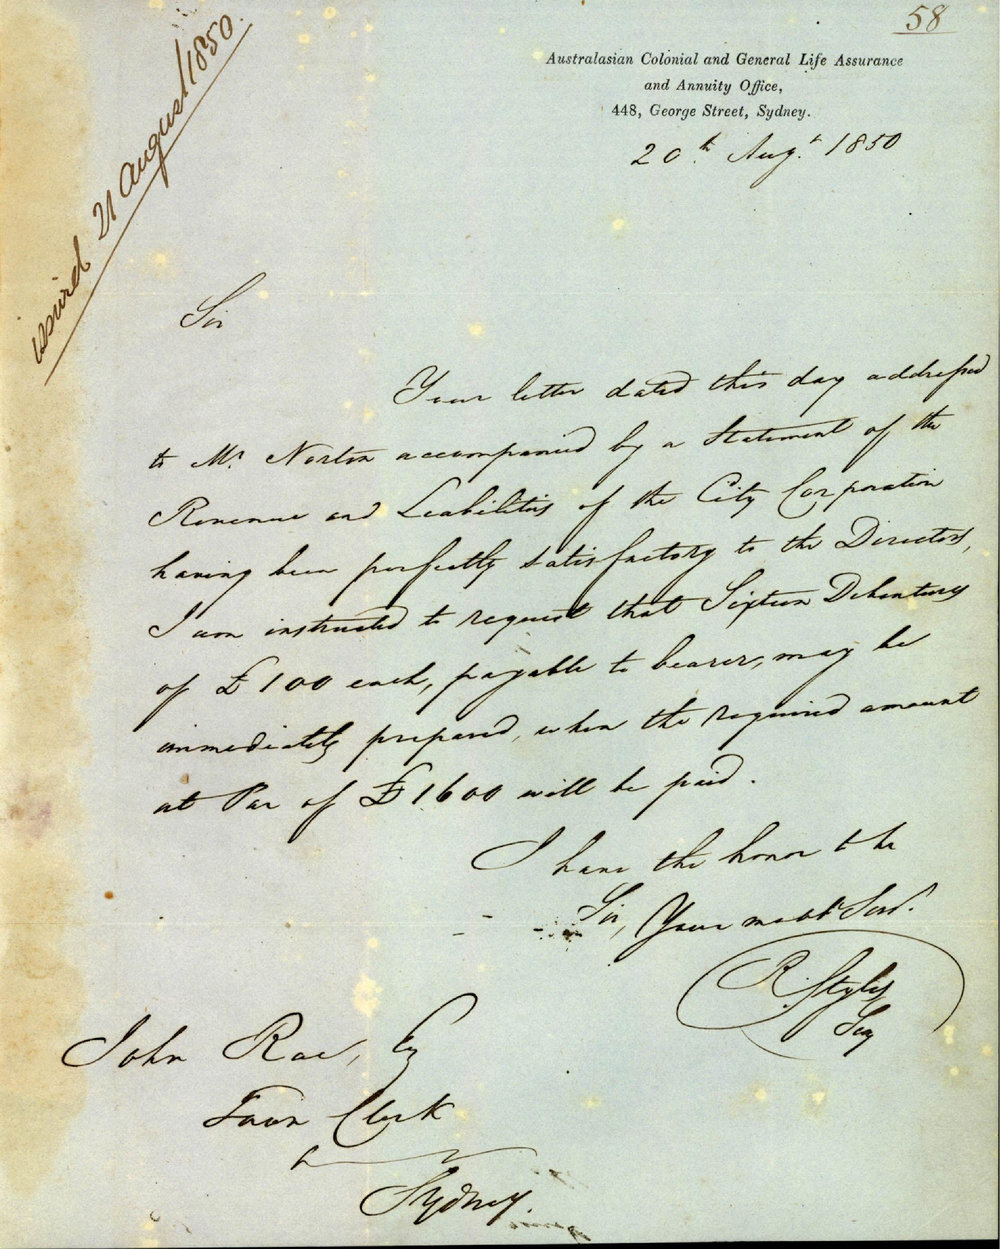 58
Australasian Colonial and General Life Assurance
and Annuity Office,
448, George Street, Sydney.
20th Augt 1850
issued 21 August 1850.
Sir
Your letter dated this day addressed
to Mr Norton accompanied by a Statement of the
Revenue and Liabilities of the City Corporation
having been perfectly satisfactory to the Directors,
I am instructed to request that Sixteen Debentures
of £100 each, payable to bearer, may be
immediately prepared, when the required amount
at Par of £1600 will be paid.
I have the honor to be
Sir, Your most obt Servt
R. Styles
Secy
John Rae, Esq
Town Clerk
Sydney.